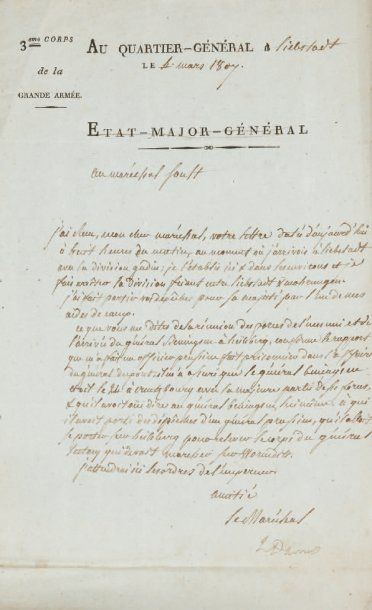 3eme CORPS
de la
GRANDE ARMÉE.
AU QUARTIER-GÉNÉRAL à Liebstadt
LE 4 mars 1807.
ETAT-MAJOR-GÉNÉRAL
au maréchal Soult
j'ai reçu, mon cher maréchal, votre lettre datée d'aujourd'hui
à huit heures du matin, au moment où j'arrivois à Liebstadt
avec la division gudin; je l'établis ici & dans les environs et je
fais arrêter la division friant entre liebstadt & mohrungen
j'ai fait partir vos dépêches pour sa majesté par l'un de mes
aides de camp.
ce que vous me dites de la réunion des forces de l'ennemi et de
l'arrivée du général Benningsen à heilsberg, confirme le rapport
que m'a fait un officier prussien fait prisonnier dans l'affaire
du général dupont; il a assuré que le général Benningsen
étoit le 24 à avec la majeure partie de ses forces,
& qu'il avoit ouï dire au général lui même à qui
il avoit porté des dépêches d'un général prussien, qu'il alloit
se porter sur heilsberg pour le corps du général
qui devoit marcher sur Wormditt.
j'attendrai ici les ordres de l'empereur
amitié
le Maréchal
L Davout